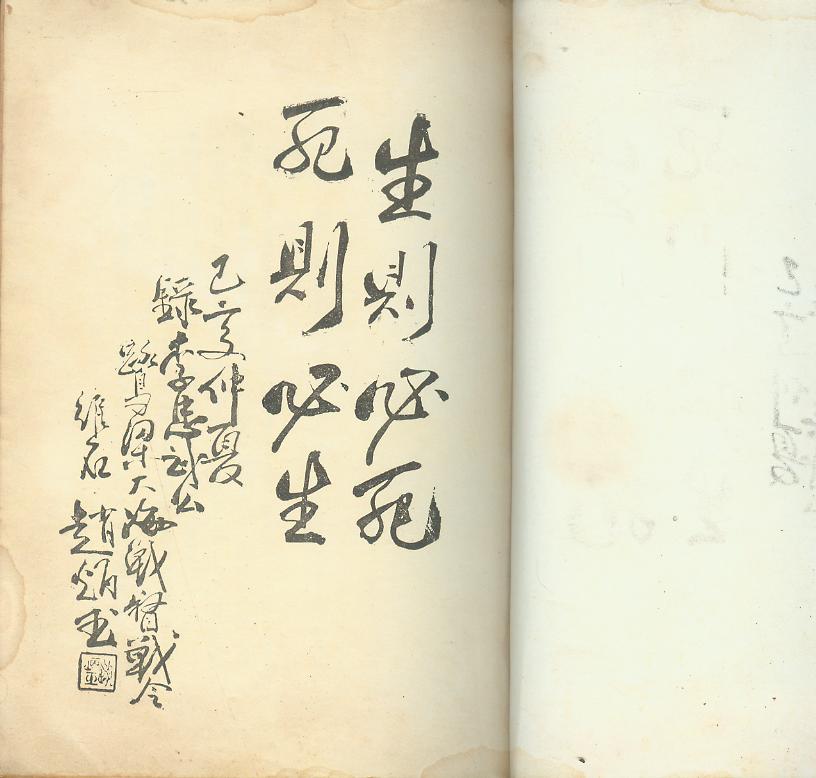 生則必死
死則必生
己亥仲夏
錄李忠武公
鷺梁大海戰督戰令
維石 趙炳玉